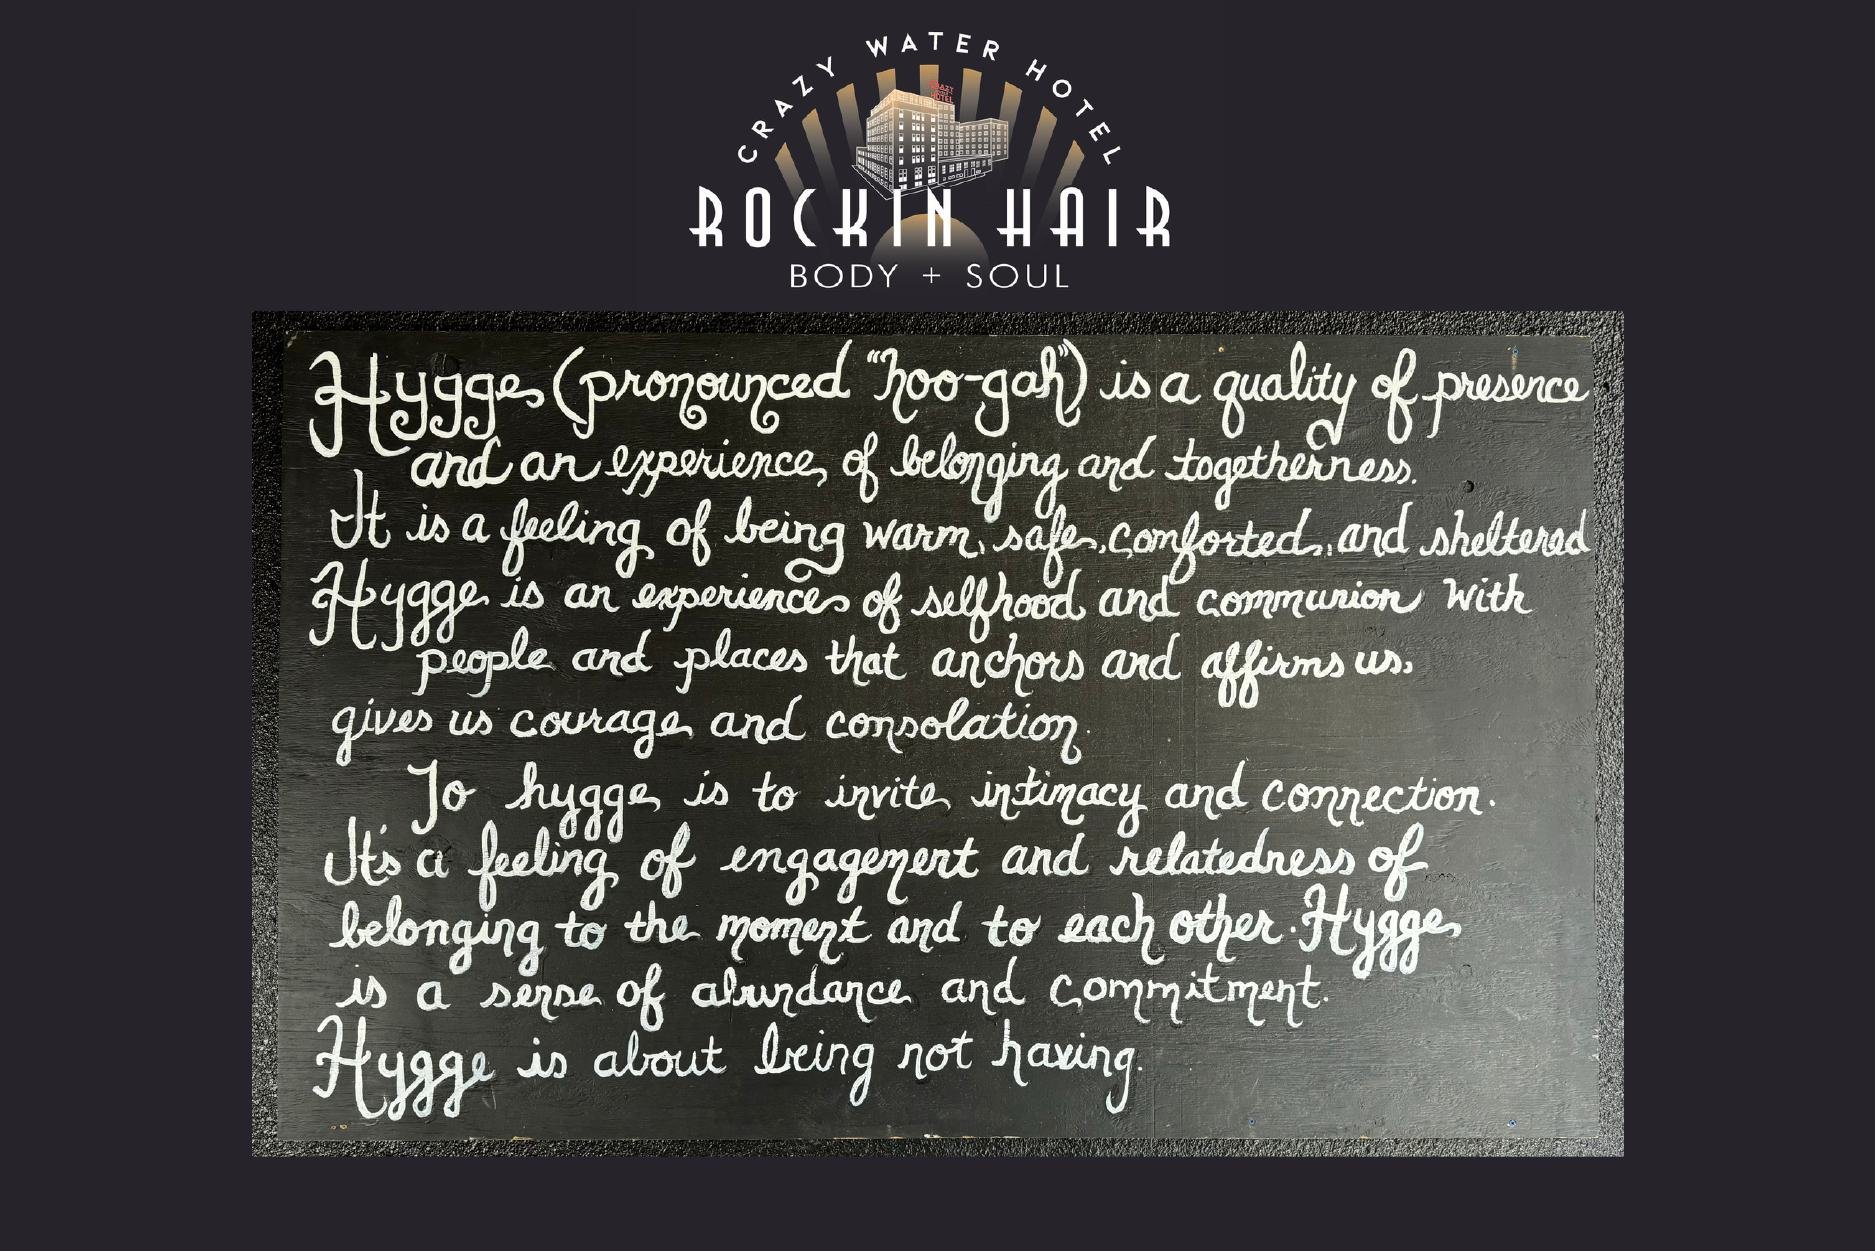 CRAZY WATER HOTEL
CRAZY
HOTEL
ROCKIN HAIR
BODY + SOUL
Hygge (pronounced "hoo-gah") is a quality of presence
and an experience of belonging and togetherness.
It is a feeling of being warm, safe, comforted, and sheltered
Hygge is an experience of selfhood and communion with
people and places that anchors and affirms us,
gives us courage and consolation.
To hygge is to invite intimacy and connection.
It's a feeling of engagement and relatedness of
belonging to the moment and to each other. Hygge
is a sense of abundance and commitment.
Hygge is about being not having.